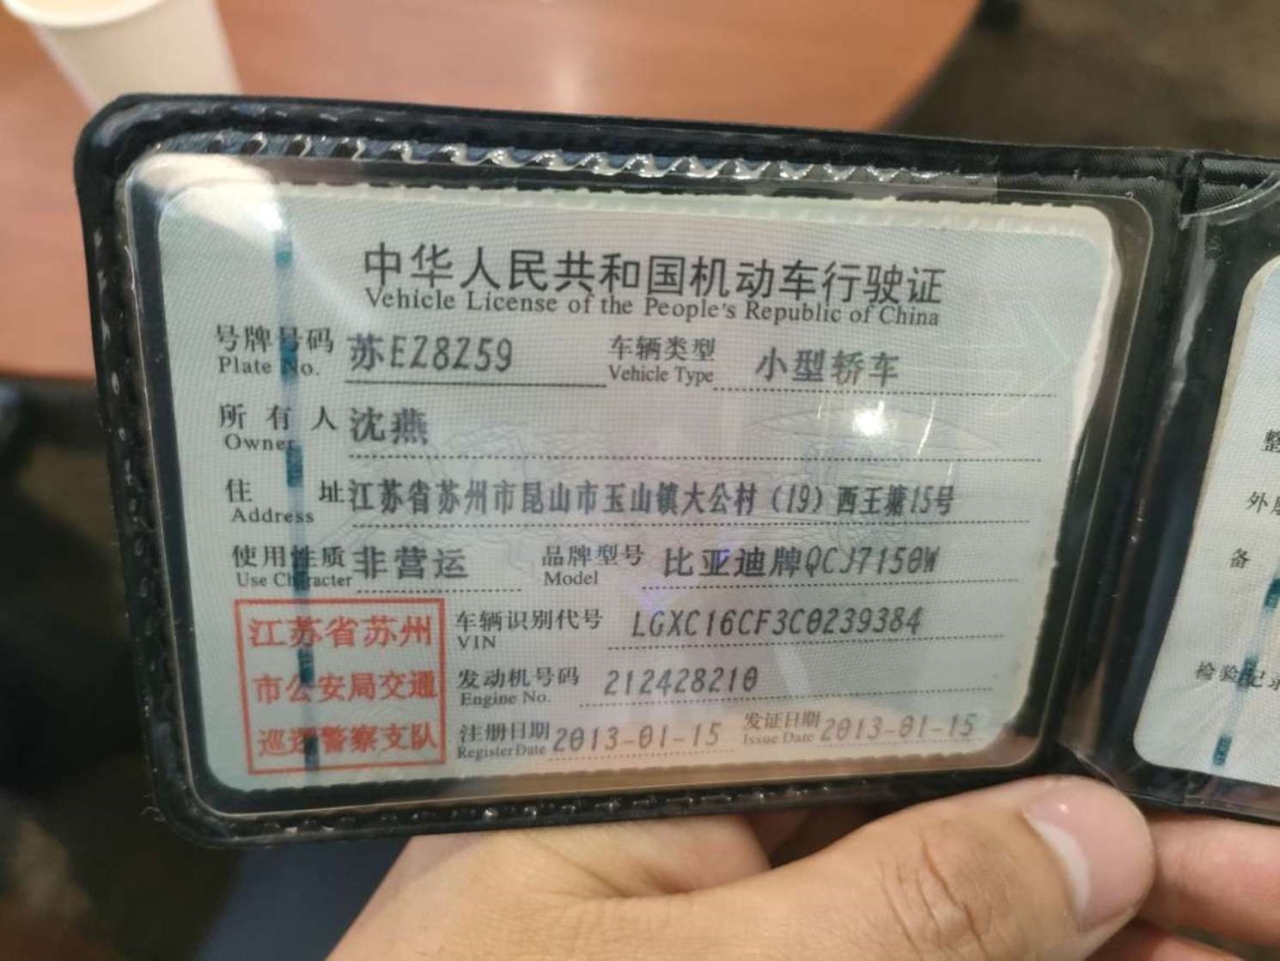 中华人民共和国机动车行驶证
Vehicle License of the People's Republic of China
号牌号码 苏EZ8Z59 车辆类型 小型轿车
Plate No. Vehicle Type
所有人 沈燕
Owner
住址 江苏省苏州市昆山市玉山镇大公村（19）西王塘15号
Address
使用性质 非营运 品牌型号 比亚迪牌QCJ7150W
Use Character Model
车辆识别代号 LGXC16CF3C0239384
VIN
发动机号码 212428210
Engine No.
注册日期 2013-01-15 发证日期 2013-01-15
Register Date Issue Date
江苏省苏州
市公安局交通
巡逻警察支队
整
外
备
检验记录